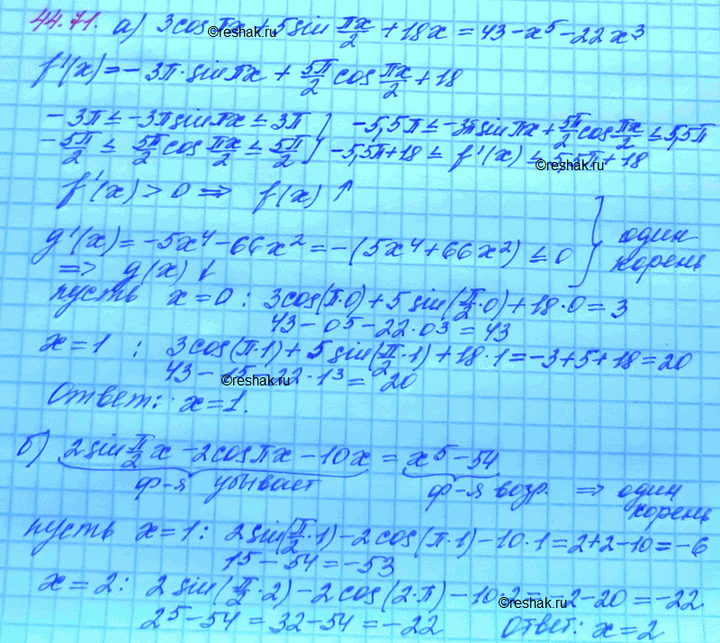 44.71. а) 3cosπx + 5sin πx/2 + 18x = 43 - x⁵ - 22x³
©reshak.ru
f'(x) = -3π·sinπx + 5π/2 cos πx/2 + 18
-3π ≤ -3πsinπx ≤ 3π } -5,5π ≤ -3πsinπx + 5π/2 cos πx/2 ≤ 5,5π
-5π/2 ≤ 5π/2 cos πx/2 ≤ 5π/2 } -5,5π+18 ≤ f'(x) ≤ 5,5π+18
©reshak.ru
f'(x) > 0 ⇒ f(x) ↑
g'(x) = -5x⁴ - 66x² = -(5x⁴ + 66x²) ≤ 0 } один корень
⇒ g(x) ↓
пусть x=0 : 3cos(π·0) + 5sin(π/2·0) + 18·0 = 3
43 - 0⁵ - 22·0³ = 43
x=1 ; 3cos(π·1) + 5sin(π/2·1) + 18·1 = -3+5+18 = 20
43 - 1⁵ - 22·1³ = 20
©reshak.ru
Ответ: x=1.
б) 2sin π/2 x - 2cosπx - 10x = x⁵ - 54
ф-я убывает ф-я возр. ⇒ один корень
пусть x=1 : 2sin(π/2·1) - 2cos(π·1) - 10·1 = 2+2-10 = -6
1⁵ - 54 = -53
x=2: 2sin(π/2·2) - 2cos(2·π) - 10·2 = -2-20 = -22
©reshak.ru
2⁵ - 54 = 32 - 54 = -22 Ответ: x=2